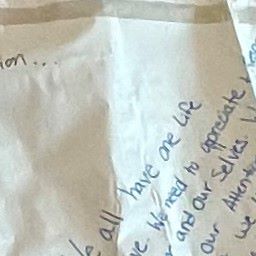 ion...
We all have one life
ve. We need to appreciate
and Our Selves.
Our Attention
we